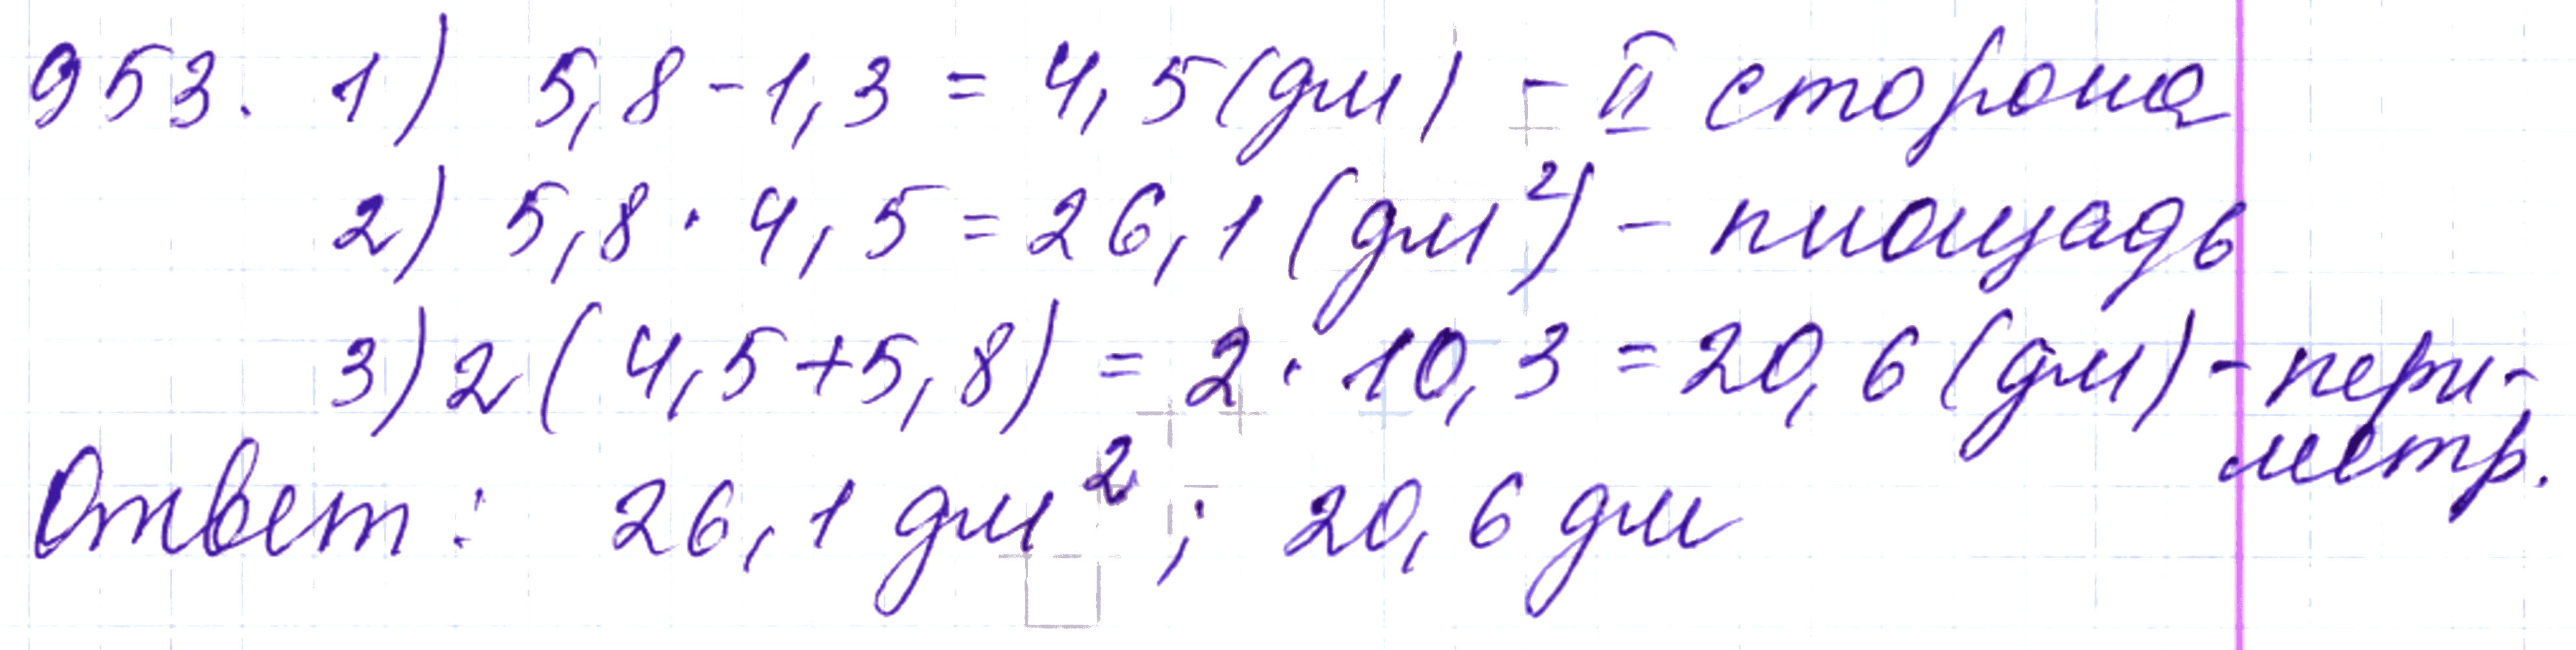 953. 1) 5,8 - 1,3 = 4,5 (дм) - II сторона
2) 5,8 · 4,5 = 26,1 (дм²) - площадь
3) 2 (4,5 + 5,8) = 2 · 10,3 = 20,6 (дм) - пери-
метр.
Ответ: 26,1 дм²; 20,6 дм